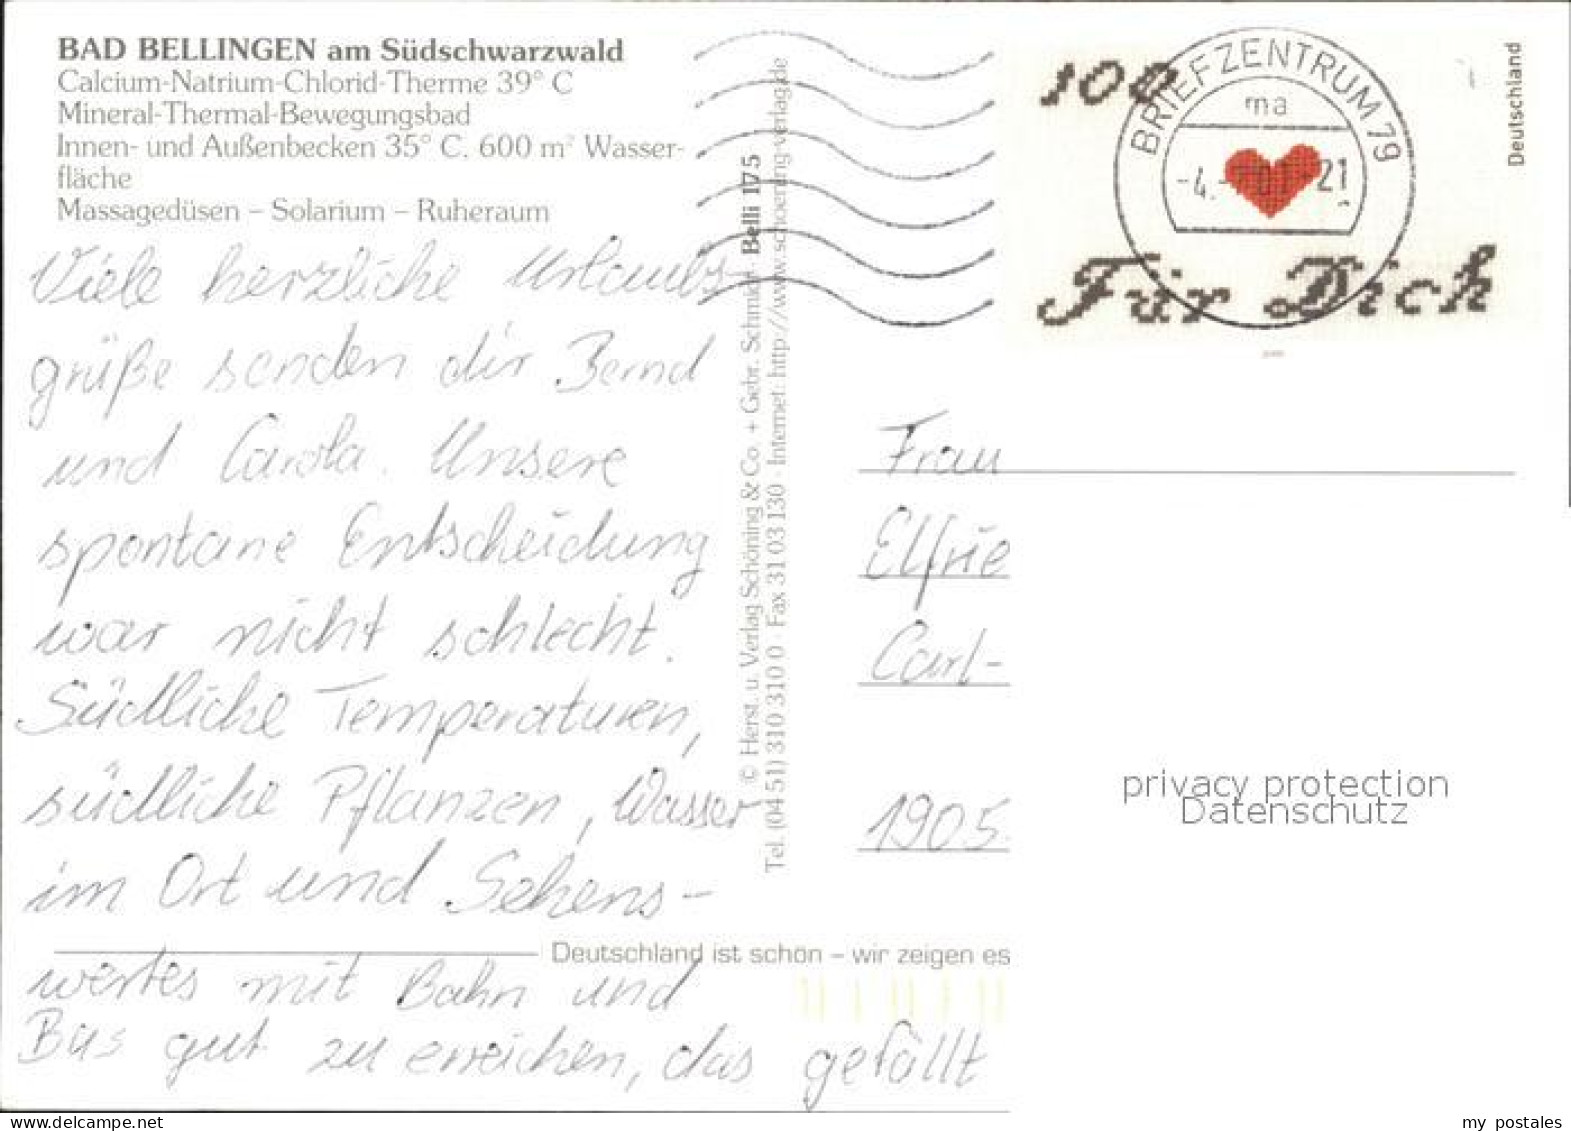 BAD BELLINGEN am Südschwarzwald
Calcium-Natrium-Chlorid-Therme 39° C
Mineral-Thermal-Bewegungsbad
Innen- und Außenbecken 35° C. 600 m² Wasser-
fläche
Massagedüsen – Solarium – Ruheraum
Viele herzliche Urlaubs-
grüße senden dir Bernd
und Carola. Unsere
spontane Entscheidung
war nicht schlecht.
Südliche Temperaturen,
südliche Pflanzen, Wasser
im Ort und Sehens-
wertes mit Bahn und
Bus gut zu erreichen, das gefällt
Deutschland ist schön – wir zeigen es
© Herst. u. Verlag Schöning & Co. + Gebr. Schmidt Belli 175
Tel. (04 51) 310 310 0 · Fax 31 03 130 Internet: http://www.schoening-verlag.de
100
Deutschland
Für Dich
BRIEFZENTRUM 79
ma
-4.- 21
Frau
Elfrie
Carl-
1905
privacy protection
Datenschutz
delcampe.net
my_postales